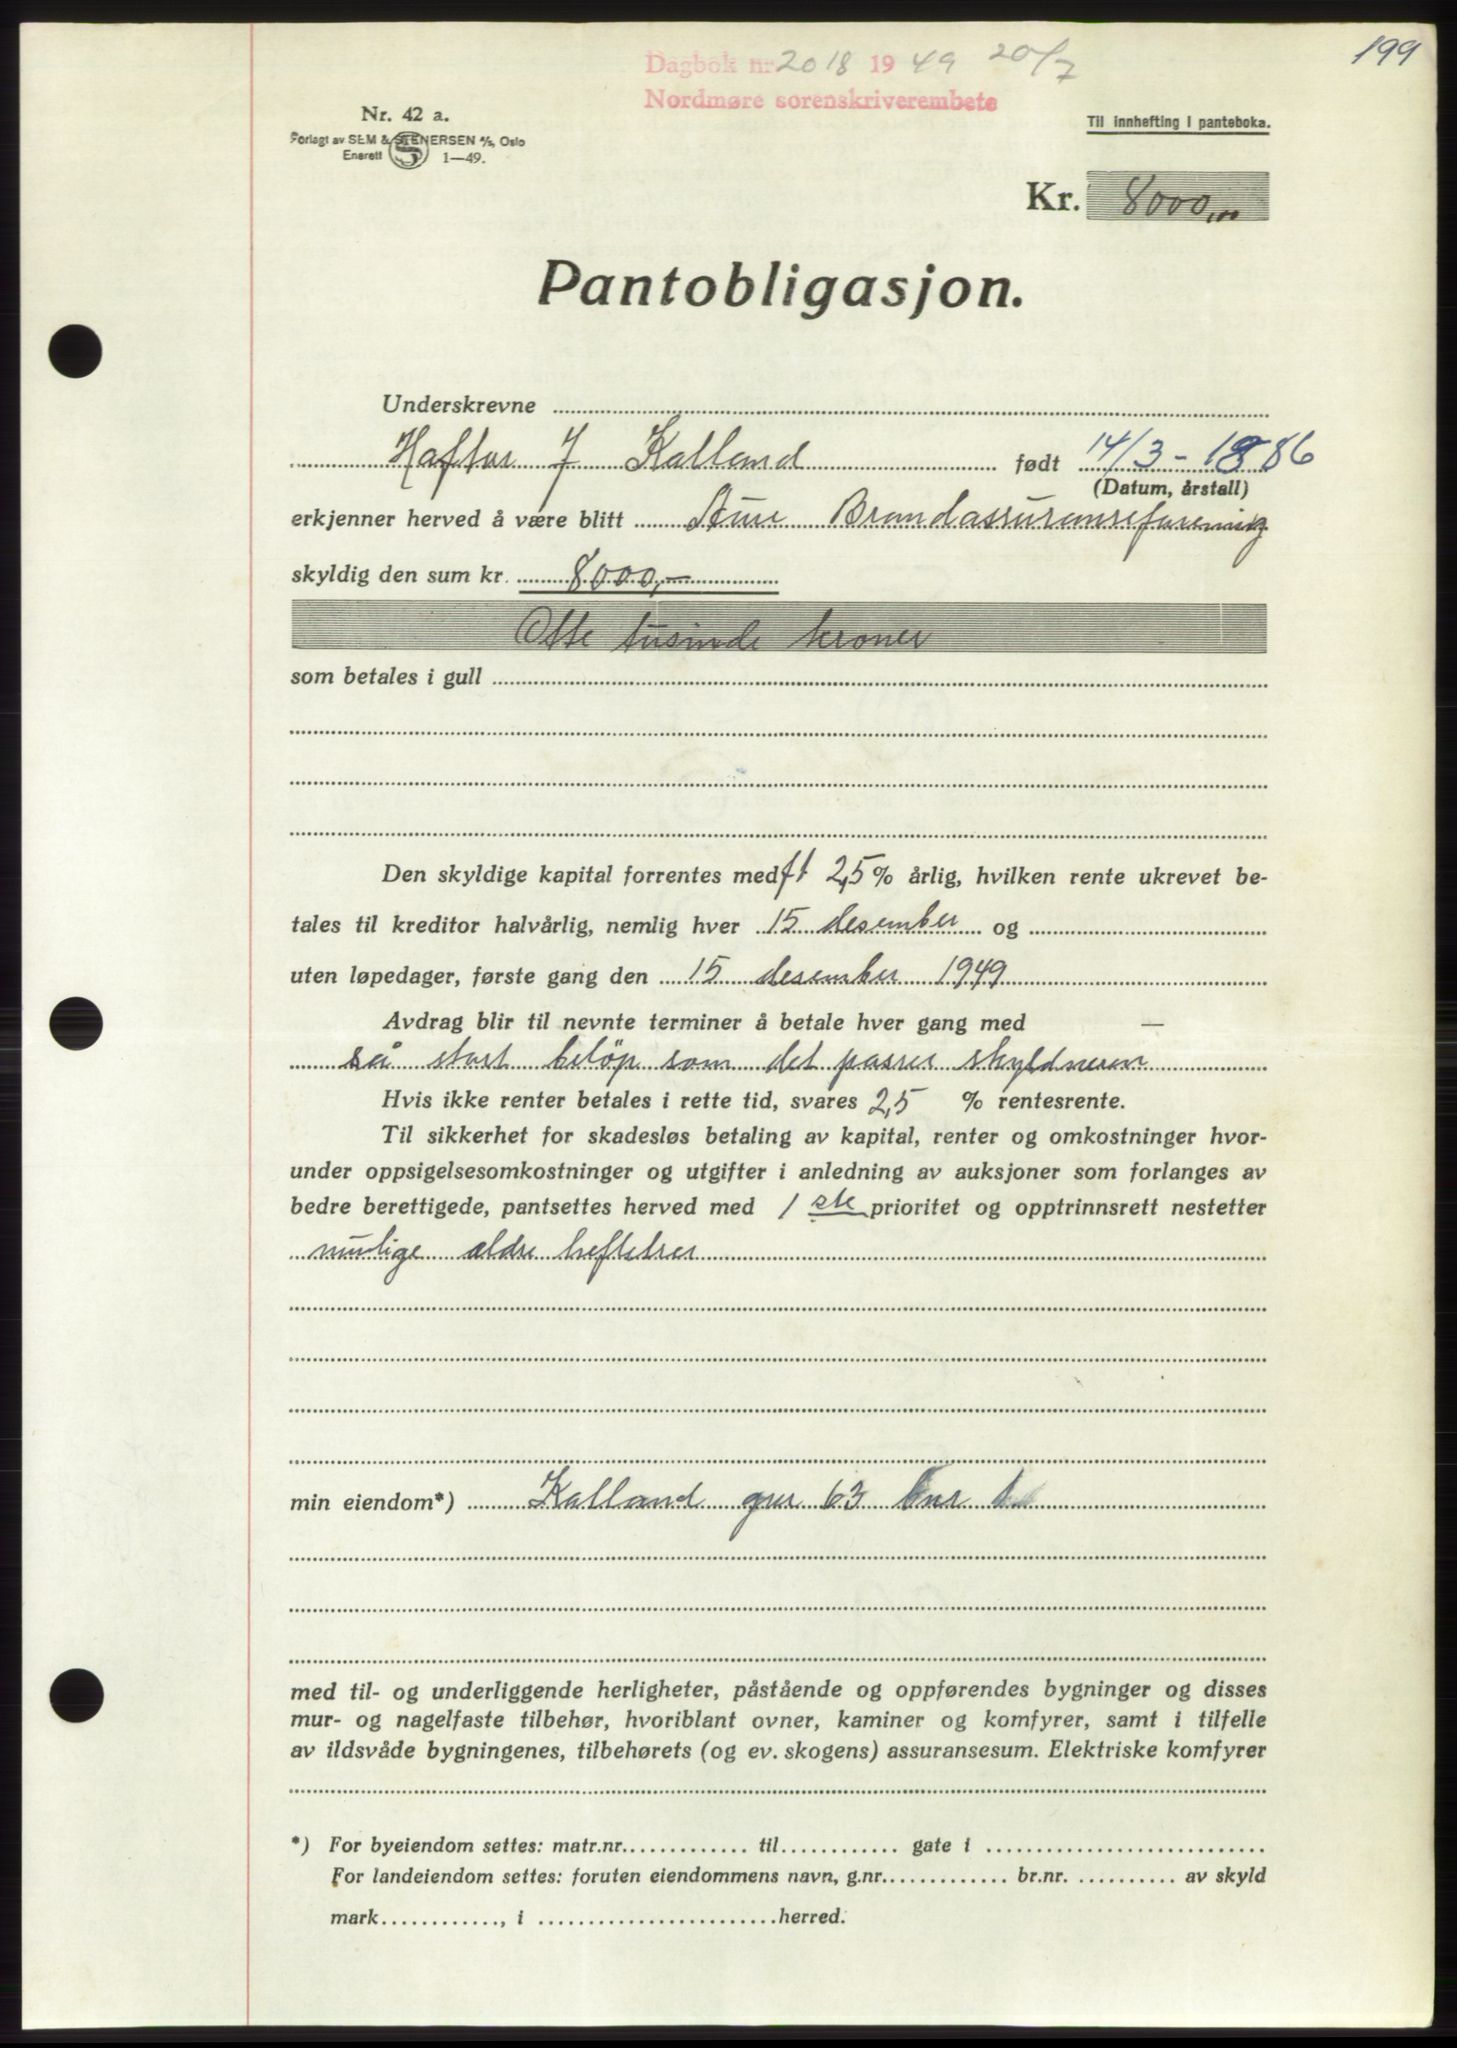 199
Dagbok nr. 2018 1949 20/7
Nordmøre sorenskriverembete
Nr. 42 a.
Forlagt av SEM & STENERSEN A/S, Oslo
Enerett S 1—49.
Til innhefting i panteboka.
Kr. 8000,00
Pantobligasjon.
Underskrevne
Haftor J Kalland født 14/3 - 1886
(Datum, årstall)
erkjenner herved å være blitt Aure Brandassuranseforening
skyldig den sum kr. 8000,-
Otte tusinde kroner
som betales i gull
Den skyldige kapital forrentes med ft 2,5 % årlig, hvilken rente ukrevet be-
tales til kreditor halvårlig, nemlig hver 15 desember og
uten løpedager, første gang den 15 desember 1949
Avdrag blir til nevnte terminer å betale hver gang med —
så stort beløp som det passer skyldneren
Hvis ikke renter betales i rette tid, svares 2,5 % rentesrente.
Til sikkerhet for skadesløs betaling av kapital, renter og omkostninger hvor-
under oppsigelsesomkostninger og utgifter i anledning av auksjoner som forlanges av
bedre berettigede, pantsettes herved med 1 ste prioritet og opptrinnsrett nestetter
mulige eldre heftelser
min eiendom*) Kalland gnr 63 bnr
med til- og underliggende herligheter, påstående og oppførendes bygninger og disses
mur- og nagelfaste tilbehør, hvoriblant ovner, kaminer og komfyrer, samt i tilfelle
av ildsvåde bygningenes, tilbehørets (og ev. skogens) assuransesum. Elektriske komfyrer
*) For byeiendom settes: matr.nr. til gate i
For landeiendom settes: foruten eiendommens navn, g.nr. br.nr. av skyld
mark , i herred.